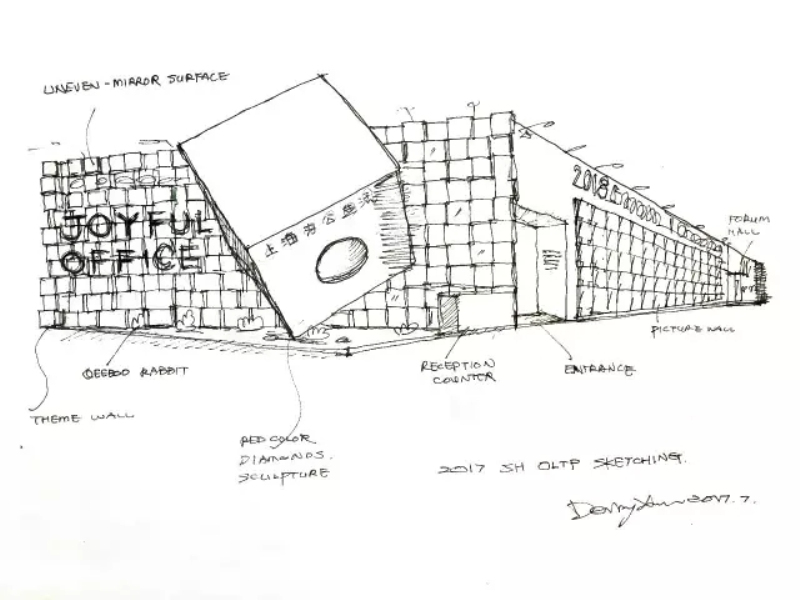 UNEVEN-MIRROR SURFACE
JOYFUL
OFFICE
上海办公
2018
FORUM
HALL
PICTURE WALL
QEEBOO RABBIT
RECEPTION
COUNTER
ENTRANCE
THEME WALL
RED COLOR
DIAMONDS.
SCULPTURE
2017 SH OLTP SKETCHING.
2017.7.